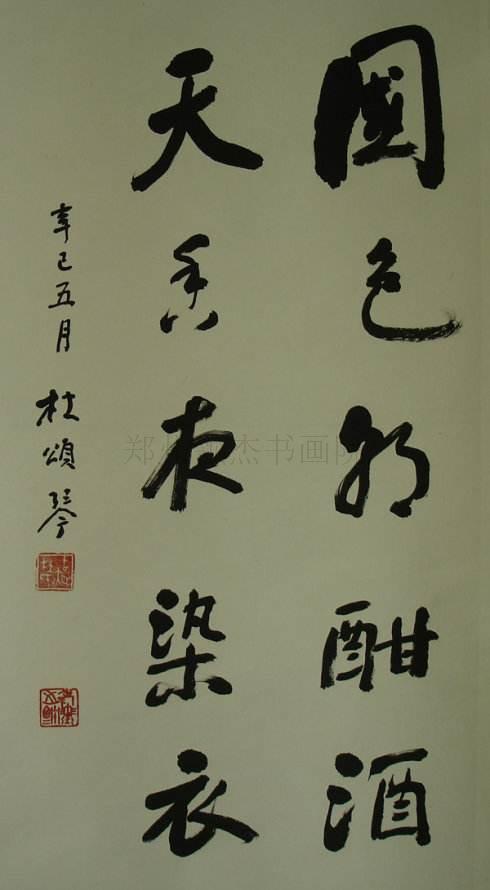 國色朝酣酒
天香夜染衣
辛巳五月 杜頌琴